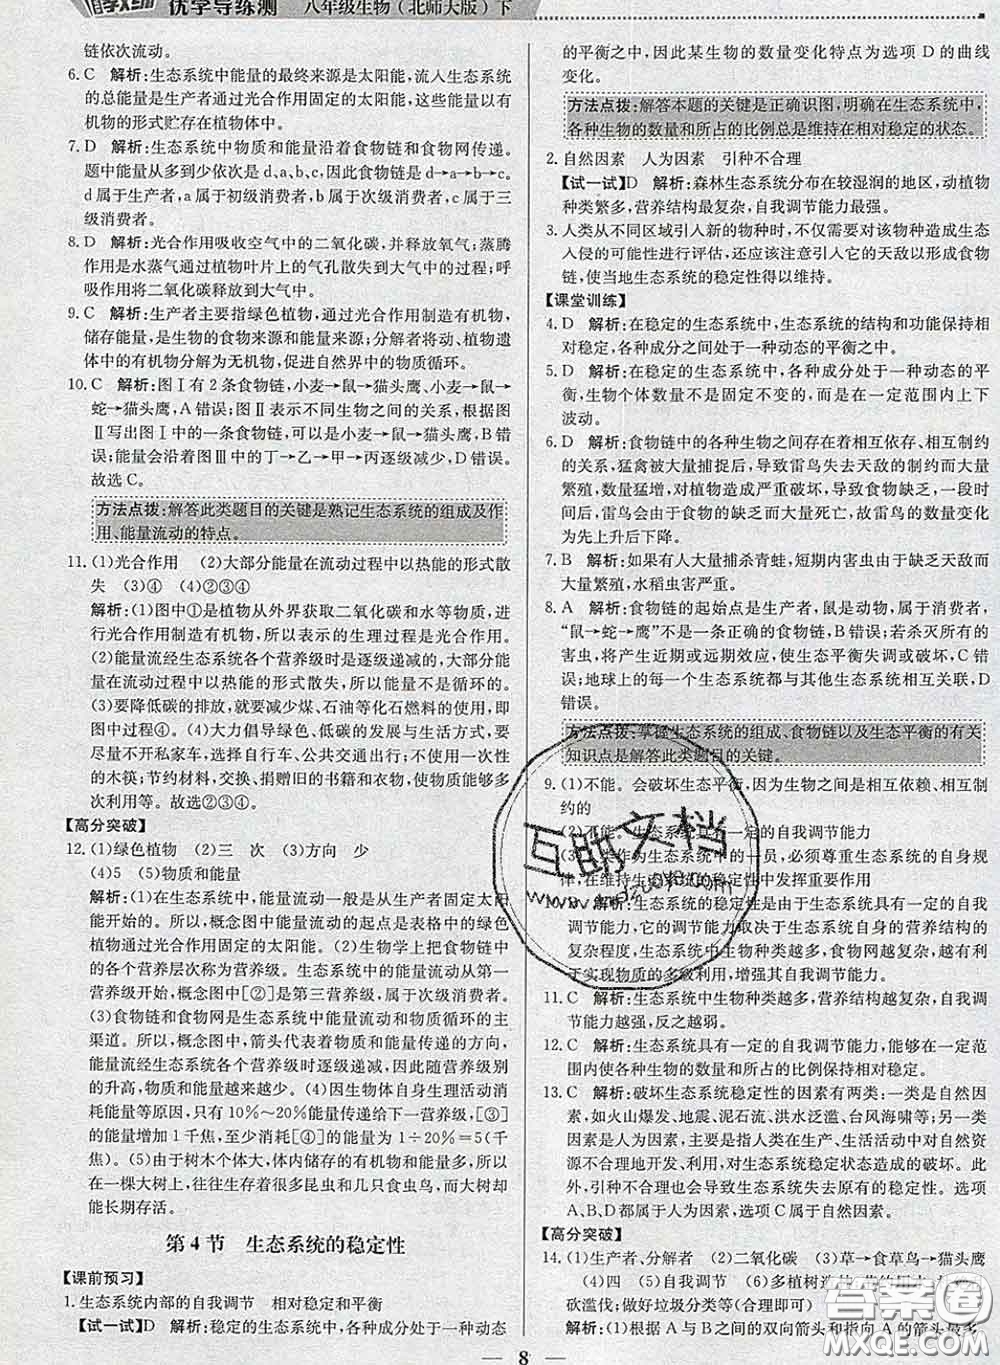 自学
优学导练测　八年级生物(北师大版)下
链依次流动。
6. C　解析:生态系统中能量的最终来源是太阳能,流入生态系统
的总能量是生产者通过光合作用固定的太阳能,太阳能以有
机物的形式贮存在植物体中。
7. D　解析:生态系统中物质和能量沿着食物链和食物网传递。
题中能量从多到少依次是 d、a、b、c,因此食物链是 d→a→b→c。
d 属于生产者,a 属于初级消费者,b 属于次级消费者,c 属于三
级消费者。
8. D　解析:光合作用吸收空气中的二氧化碳,并释放氧气;蒸腾
作用是水蒸气通过植物叶片上的气孔散失到大气中的过程;呼
吸作用将二氧化碳释放到大气中。
9. C　解析:生产者主要指绿色植物,通过光合作用制造有机物,
储存能量,是生物的食物来源和能量来源;分解者将动、植物
遗体中的有机物分解为无机物,促进自然界中的物质循环。
10. C　解析:图Ⅰ有 2 条食物链,小麦→鼠→猫头鹰、小麦→鼠→
蛇→猫头鹰,A 错误;图Ⅱ表示不同生物之间的关系,根据图
Ⅱ写出图Ⅰ中的一条食物链,可以是小麦→鼠→猫头鹰,B 错
误;能量会沿着图Ⅱ中的丁→乙→甲→丙逐级减少,D 错误。
故选 C。
方法点拨:解答此类题目的关键是熟记生态系统的组成及作
用、能量流动的特点。
11. (1)光合作用　(2)大部分能量在流动过程中以热能的形式散
失　(3)④　(4)②③④
解析:(1)图中①是植物从外界获取二氧化碳和水等物质,进
行光合作用制造有机物,所以表示的生理过程是光合作用。
(2)能量流经生态系统各个营养级时是逐级递减的,大部分能
量在流动过程中以热能的形式散失,所以能量是不循环的。
(3)要降低碳的排放,就要减少煤、石油等化石燃料的使用,即
图中过程④。(4)大力倡导绿色、低碳的发展与生活方式,要
尽量不开私家车,选择自行车、公共交通出行;不使用一次性
的木筷;节约材料,交换、捐赠旧的书籍和衣物,使物质能够多
次利用等。故选②③④。
【高分突破】
12. (1)绿色植物　(2)三　次　(3)方向　少
(4)5　(5)物质和能量
解析:(1)在生态系统中,能量流动一般是从生产者固定太阳
能开始的。因此,概念图中能量流动的起点是表格中的绿色
植物通过光合作用固定的太阳能。(2)生物学上把食物链中
的各个营养层次称为营养级。生态系统中的能量流动从第一
营养级开始,概念图中[②]是第三营养级,属于次级消费者。
(3)食物链和食物网是生态系统中能量流动和物质循环的主
渠道。所以,概念图中,箭头代表着食物与能量传递的方向,
能量流经生态系统各个营养级时逐级递减,因此随营养级的
升高,生物的能量越来越少。(4)因生物体自身生理活动消
耗能量等原因,只有 10%~20%能量传递给下一营养级,[③]
的能量增加 1 千焦,至少消耗[④]的能量为 1÷20%=5(千
焦)。(5)由于树木个体大,体内储存的有机物和能量多,所以
在一棵大树上,往往生存着很多昆虫和几只食虫鸟,而大树却
能长期存活。
第 4 节　生态系统的稳定性
【课前预习】
1. 生态系统内部的自我调节　相对稳定和平衡
【试一试】D　解析:稳定的生态系统中,各种成分处于一种动态
的平衡之中,因此某生物的数量变化特点为选项 D 的曲线
变化。
方法点拨:解答本题的关键是正确识图,明确在生态系统中,
各种生物的数量和所占的比例总是维持在相对稳定的状态。
2. 自然因素　人为因素　引种不合理
【试一试】D　解析:森林生态系统分布在较湿润的地区,动植物
种类繁多,营养结构最复杂,自我调节能力最强。
3. 人类从不同区域引入新的物种时,不仅需要对该物种造成生态
入侵的可能性进行评估,还应该注意引入它的天敌以形成食物
链,使当地生态系统的稳定性得以维持。
【课堂训练】
4. D　解析:在稳定的生态系统中,生态系统的结构和功能保持相
对稳定,各种成分之间处于一种动态的平衡之中。
5. D　解析:在稳定的生态系统中,各种成分处于一种动态的平
衡,生物个体数不是固定不变的,而是在一定范围内上下
波动。
6. D　解析:食物链中的各种生物之间存在着相互依存、相互制约
的关系,猛禽被大量捕捉后,导致雷鸟失去天敌的制约而大量
繁殖,数量猛增,对植物造成严重破坏,导致食物缺乏,一段时
间后,雷鸟会由于食物的缺乏而大量死亡,故雷鸟的数量变化
为先上升后下降。
7. B　解析:如果有人大量捕杀青蛙,短期内害虫由于缺乏天敌而
大量繁殖,水稻虫害严重。
8. A　解析:食物链的起始点是生产者,鼠是动物,属于消费者,
“鼠→蛇→鹰”不是一条正确的食物链,B 错误;若杀灭所有的
害虫,将产生近期或远期效应,使生态平衡失调或破坏,C 错
误;地球上的每一个生态系统都与其他生态系统相互关联,D
错误。
方法点拨:掌握生态系统的组成、食物链以及生态平衡的有关
知识点是解答此类题目的关键。
9. (1)不能。会破坏生态平衡,因为生物之间是相互依赖、相互制
约的
(2)不能。生态系统具有一定的自我调节能力
(3)人类作为生态系统中的一员,必须尊重生态系统的自身规
律,在维持生态系统的稳定性中发挥重要作用
解析:生态系统的稳定性是由于生态系统具有一定的自我
调节能力,它的调节能力取决于生态系统自身的营养结构的
复杂程度,生态系统中生物种类越多,食物网越复杂,越有利
于实现物质的多级利用,增强其自我调节能力。
11. C　解析:生态系统中生物种类越多,营养结构越复杂,自我调
节能力越强,反之越弱。
12. C　解析:生态系统具有一定的自我调节能力,能够在一定范
围内使各种生物的数量和所占的比例保持相对稳定。
13. C　解析:破坏生态系统稳定性的因素有两类:一类是自然因
素,如火山爆发、地震、泥石流、洪水泛滥、台风海啸等;另一类
是人为因素,主要是指人类在生产、生活活动中对自然资源
不合理地开发、利用,对生态系统稳定状态造成的破坏。此
外,引种不合理也会使生态系统失去原有的稳定性。选项
A、B、D都属于自然因素,选项 C 属于人为因素。
【高分突破】
14. (1)生产者、分解者　(2)二氧化碳　(3)草→食草鸟→猫头鹰
(4)四　(5)自我调节　(6)多植树造林
砍滥伐;做好垃圾分类等(合理即可)
解析:(1)根据 A 与 B 之间的双向箭头和指向 A 的箭头最多
8
互助文档
答案圈
MXQE.COM